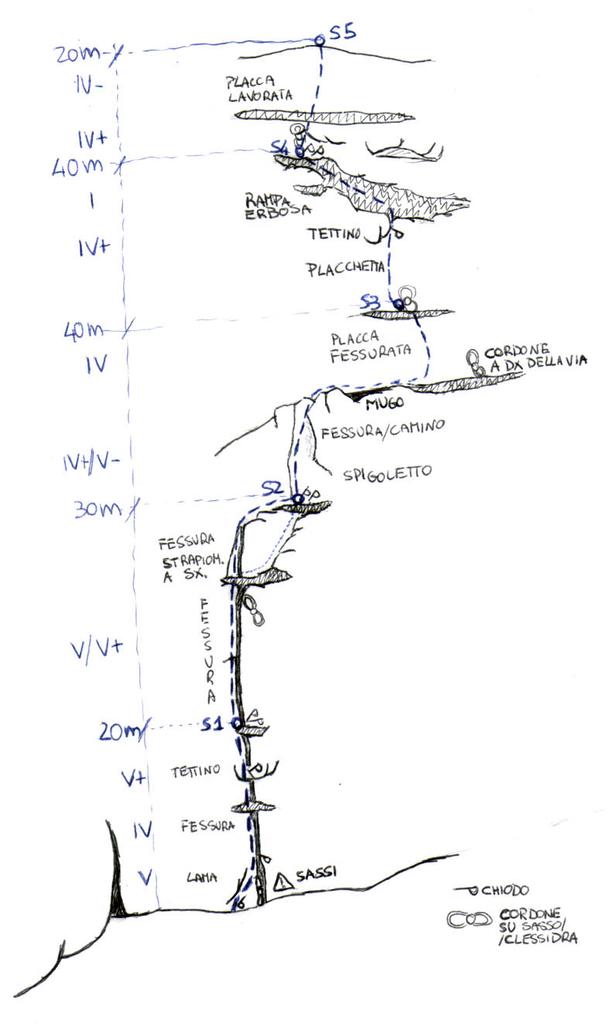 S5
20m
IV-
PLACCA
LAVORATA
IV+
S4
40m
I
RAMPA
ERBOSA
TETTINO
IV+
PLACCHETTA
S3
40m
PLACCA
FESSURATA
IV
CORDONE
A DX DELLA VIA
MUGO
FESSURA/CAMINO
IV+/V-
SPIGOLETTO
S2
30m
FESSURA
STRAPIOM.
A SX.
FESSURA
V/V+
S1
20m
V+
TETTINO
IV
FESSURA
V
LAMA
! SASSI
CHIODO
CORDONE
SU SASSO/
/CLESSIDRA